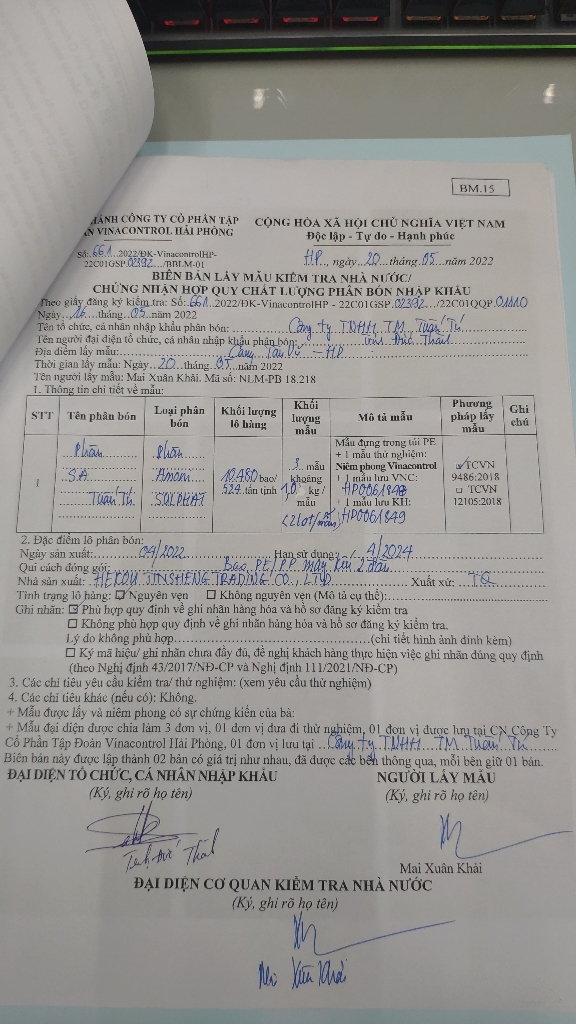 BM.15
HÁNH CÔNG TY CỔ PHẦN TẬP
N VINACONTROL HẢI PHÒNG
CỘNG HÒA XÃ HỘI CHỦ NGHĨA VIỆT NAM
Độc lập - Tự do - Hạnh phúc
Số: 661.../2022/ĐK-VinacontrolHP-
22C01GSP 02392.../BBLM-01
HP..., ngày...20...tháng...05...năm 2022
BIÊN BẢN LẤY MẪU KIỂM TRA NHÀ NƯỚC/
CHỨNG NHẬN HỢP QUY CHẤT LƯỢNG PHÂN BÓN NHẬP KHẨU
Theo giấy đăng ký kiểm tra: Số: 661...2022/ĐK-VinacontrolHP - 22C01GSP 02392.../22C01QQP 01110
Ngày...16...tháng...05 năm 2022
Tên tổ chức, cá nhân nhập khẩu phân bón: Công ty TNHH TM Tuấn Tú
Tên người đại diện tổ chức, cá nhân nhập khẩu phân bón: Đức Thái
Địa điểm lấy mẫu: Cảng Tân Vũ - HP
Thời gian lấy mẫu: Ngày...20...tháng...05...năm 2022
Tên người lấy mẫu: Mai Xuân Khải. Mã số: NLM-PB 18.218
1. Thông tin chi tiết về mẫu:
STT Tên phân bón Loại phân bón Khối lượng lô hàng Khối lượng mẫu Mô tả mẫu Phương pháp lấy mẫu Ghi chú
1 Phân SA Tuấn Tú Phân Amoni SULPHAT 10.480 bao/ 524 tấn tịnh mẫu khoảng 1,0 kg / mẫu (2 lot/mẫu)
Mẫu đựng trong túi PE
+ 1 mẫu thử nghiệm:
Niêm phong Vinacontrol
+ 1 mẫu lưu VNC:
HP0061848
+ 1 mẫu lưu KH:
HP0061849
☑ TCVN
9486:2018
☐ TCVN
12105:2018
2. Đặc điểm lô phân bón:
Ngày sản xuất: 04/2022 Hạn sử dụng: 4/2024
Qui cách đóng gói: Bao PE/PP máy khâu 2 đầu
Nhà sản xuất: HEKOU JINSHENG TRADING CO., LTD Xuất xứ: TQ
Tình trạng lô hàng: ☑ Nguyên vẹn ☐ Không nguyên vẹn (Mô tả cụ thể):
Ghi nhãn: ☑ Phù hợp quy định về ghi nhãn hàng hóa và hồ sơ đăng ký kiểm tra
☐ Không phù hợp quy định về ghi nhãn hàng hóa và hồ sơ đăng ký kiểm tra.
Lý do không phù hợp (chi tiết hình ảnh đính kèm)
☐ Ký mã hiệu/ ghi nhãn chưa đầy đủ, đề nghị khách hàng thực hiện việc ghi nhãn đúng quy định
(theo Nghị định 43/2017/NĐ-CP và Nghị định 111/2021/NĐ-CP)
3. Các chỉ tiêu yêu cầu kiểm tra/ thử nghiệm: (xem yêu cầu thử nghiệm)
4. Các chỉ tiêu khác (nếu có): Không.
+ Mẫu được lấy và niêm phong có sự chứng kiến của bà:
+ Mẫu đại diện được chia làm 3 đơn vị, 01 đơn vị đưa đi thử nghiệm, 01 đơn vị được lưu tại CN Công Ty
Cổ Phần Tập Đoàn Vinacontrol Hải Phòng, 01 đơn vị lưu tại Công ty TNHH TM Tuấn Tú
Biên bản này được lập thành 02 bản có giá trị như nhau, đã được các bên thông qua, mỗi bên giữ 01 bản.
ĐẠI DIỆN TỔ CHỨC, CÁ NHÂN NHẬP KHẨU
(Ký, ghi rõ họ tên)
Đức Thái
NGƯỜI LẤY MẪU
(Ký, ghi rõ họ tên)
Mai Xuân Khải
ĐẠI DIỆN CƠ QUAN KIỂM TRA NHÀ NƯỚC
(Ký, ghi rõ họ tên)
Mai Xuân Khải